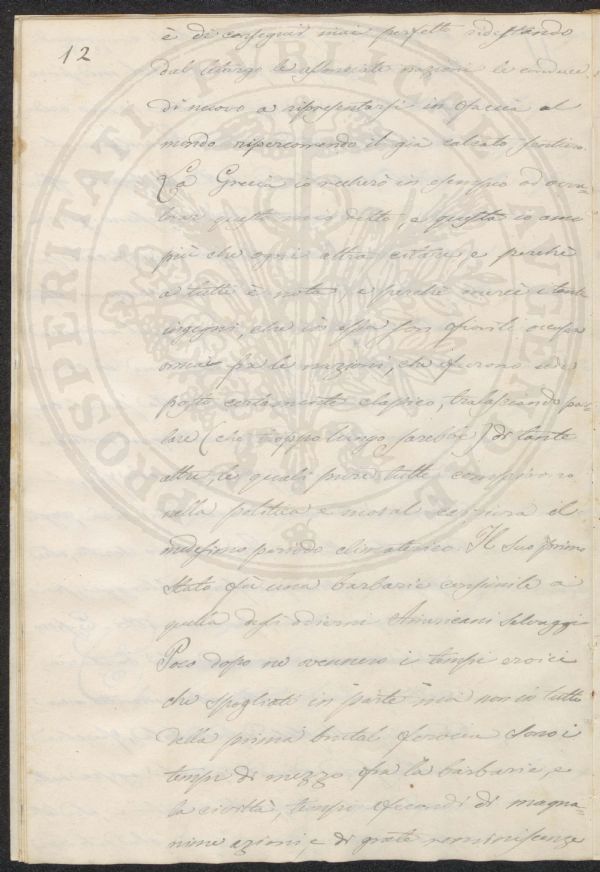 12
è di conseguir mai perfetto ridestando
dal letargo le assonnate nazioni le conduce
di nuovo a ripresentarsi in faccia al
mondo ripercorrendo il già calcato sentiero.
La Grecia io recherò in esempio ad avva-
lorar questo mio detto, e questa io amo
più che ogni altra citare, e perchè
a tutti è nota, e perchè mercè i tanti
ingegni, che in essa son fioriti occupa
omai fra le nazioni, che furono un
posto certamente classico, tralasciando par-
lare (che troppo lungo sarebbe) di tante
altre, le quali pure tutte compirono
nella politica e morale carriera il
medesimo periodo climaterico. Il suo primo
stato fù una barbarie consimile a
quella degli odierni Americani selvaggi
Poco dopo ne vennero i tempi eroici
che spogliati in parte mà non in tutto
della prima brutal ferocia sono i
tempi di mezzo frà la barbarie e
la civiltà, tempi fecondi di magna-
nime azioni, e di grate reminiscenze
PROSPERITATI PUBLICAE AUGENDAE